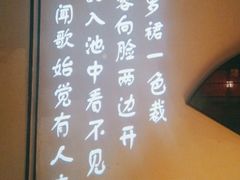 罗裙一色裁
蓉向脸两边开
入池中看不见
闻歌始觉有人